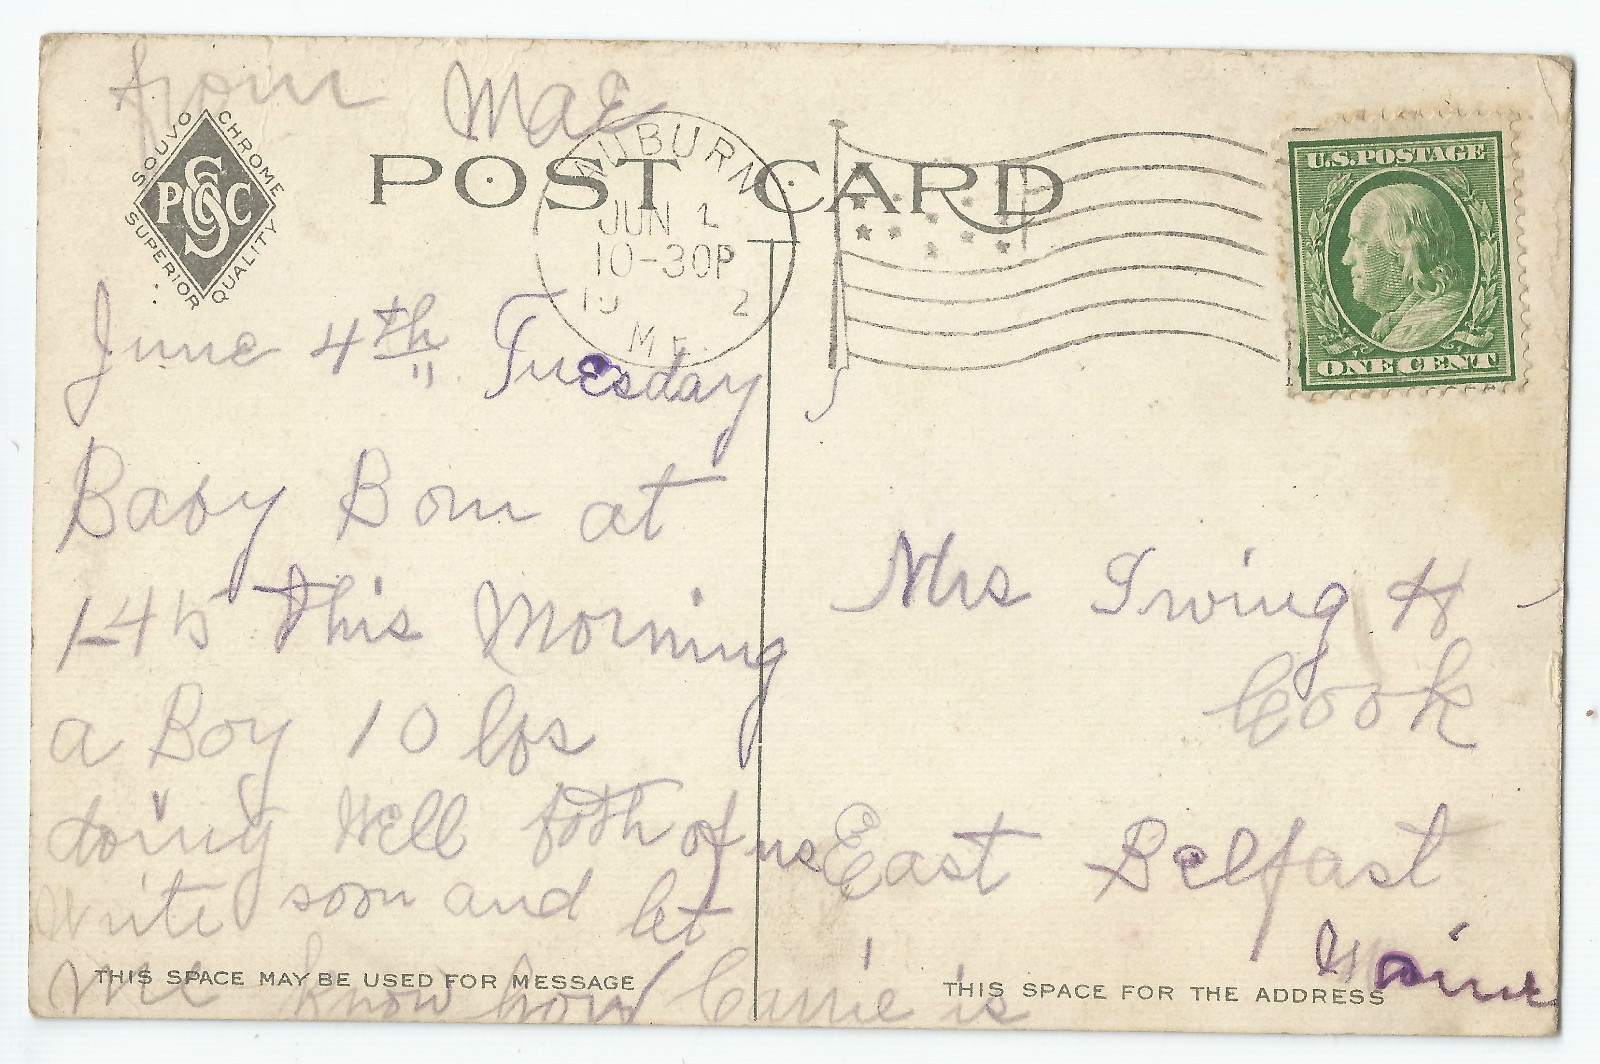 from Mae
SOUVO CHROME
PSC&C
SUPERIOR QUALITY
POST CARD
AUBURN
JUN
10-30P
19 2
ME.
U.S.POSTAGE
ONE CENT
June 4th Tuesday
Baby Born at
1-45 this Morning
a Boy 10 lbs
doing Well both of us
Write soon and let
me know how Carrie is
THIS SPACE MAY BE USED FOR MESSAGE
Mrs Irving H
Cook
East Belfast
Maine
THIS SPACE FOR THE ADDRESS